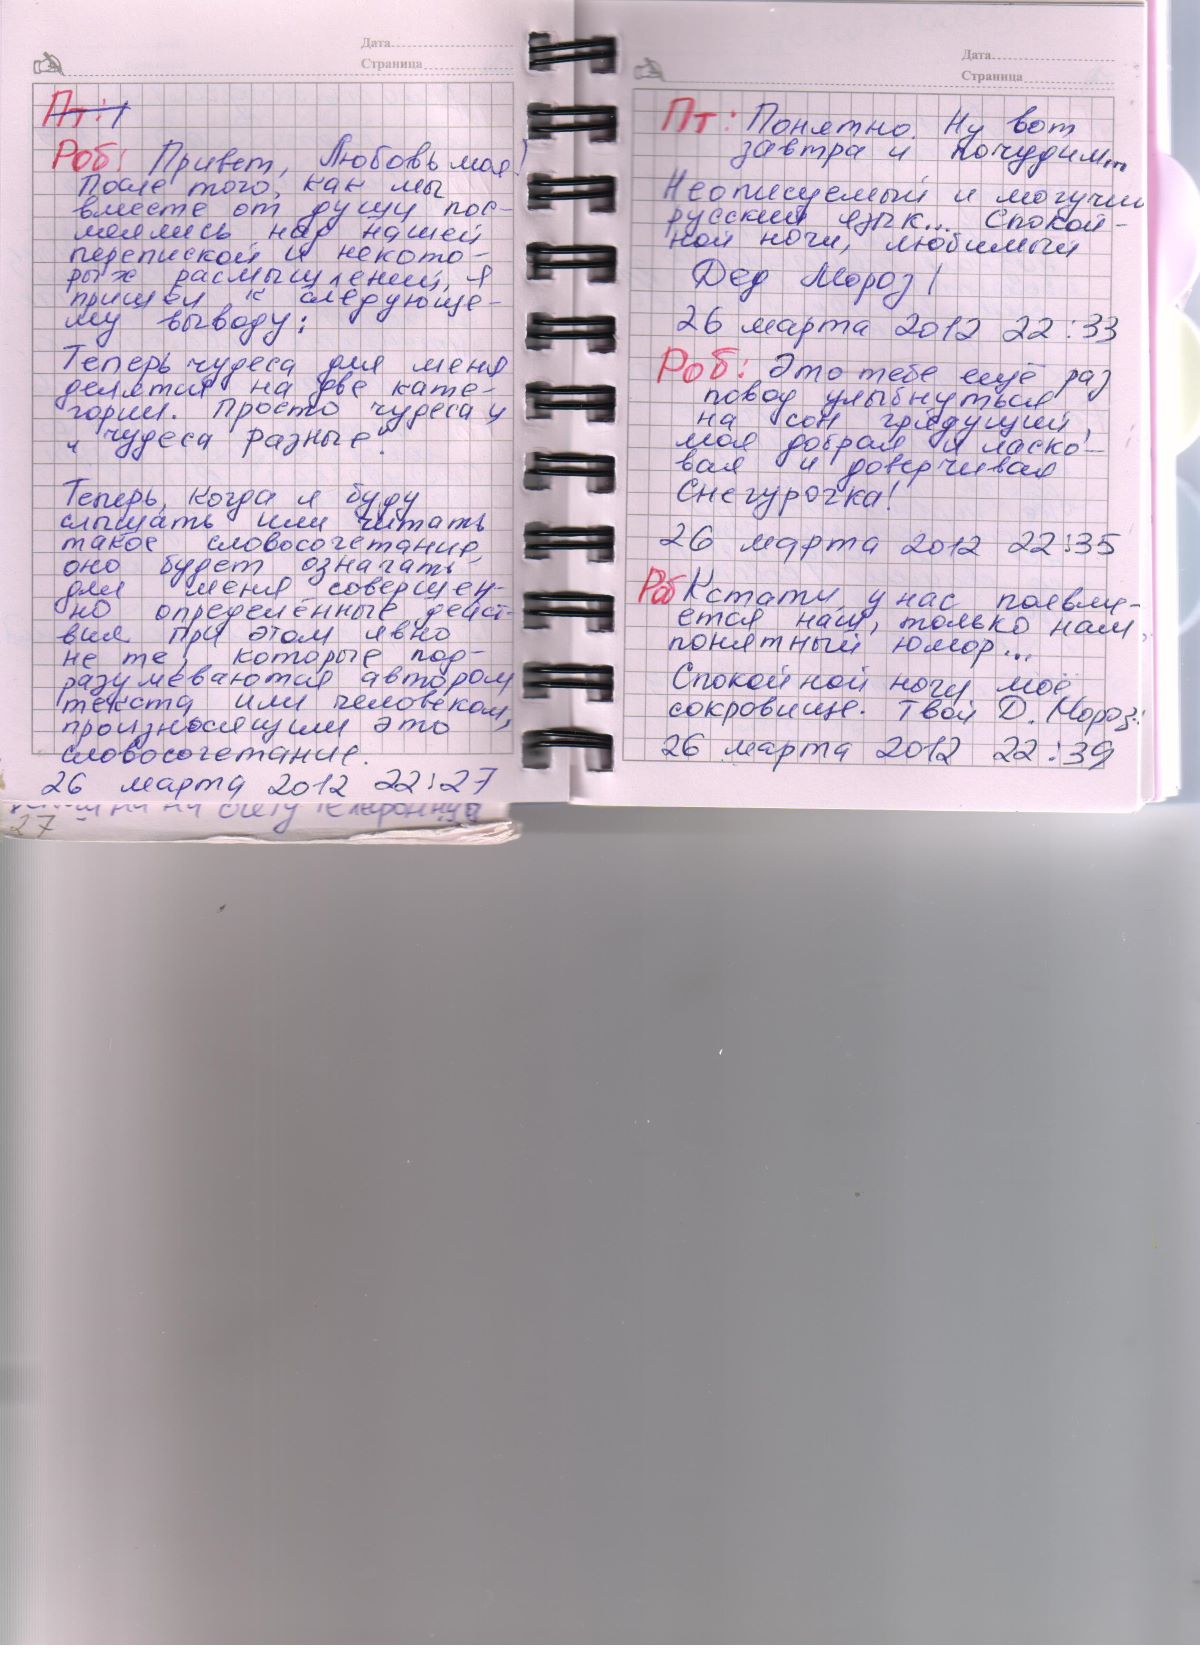 Дата
Страница
Пт:
Роб: Привет, Любовь моя!
После того, как мы
вместе от души пос-
меялись над нашей
перепиской и некото-
рых расмышлений, я
пришёл к следующе-
му выводу:
Теперь чудеса для меня
делятся на две кате-
гории. Просто чудеса и
"чудеса разные".
Теперь, когда я буду
слышать или читать
такое словосочетание,
оно будет означать
для меня совершен-
но определённые дейст-
вия. При этом явно
не те, которые под-
разумеваются автором
текста или человеком,
произносящим это
словосочетание.
26 марта 2012 22:27
на счету
27
Дата
Страница
Пт: Понятно. Ну вот
завтра и почудим...
Неописуемый и могучий
русский язык... Спокой-
ной ночи, любимый
Дед Мороз!
26 марта 2012 22:33
Роб: Это тебе ещё раз
повод улыбнуться
на сон грядущий,
моя добрая и ласко-
вая и доверчивая
Снегурочка!
26 марта 2012 22:35
Роб Кстати, у нас появля-
ется наш, только нам
понятный юмор...
Спокойной ночи, моё
сокровище. Твой Д. Мороз.
26 марта 2012 22:39